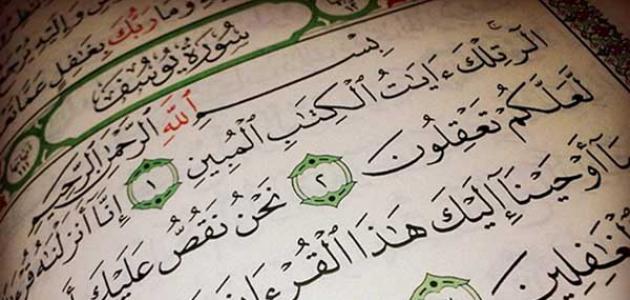 وَمَا رَبُّكَ بِغَٰفِلٍ عَمَّا
سُورَةُ يُوسُفَ
بِسْمِ ٱللَّهِ ٱلرَّحْمَٰنِ ٱلرَّحِيمِ
الٓر ۚ تِلْكَ ءَايَٰتُ ٱلْكِتَٰبِ ٱلْمُبِينِ ١ إِنَّآ أَنزَلْنَٰهُ
لَّعَلَّكُمْ تَعْقِلُونَ ٢ نَحْنُ نَقُصُّ عَلَيْكَ
أَوْحَيْنَآ إِلَيْكَ هَٰذَا ٱلْقُرْءَانَ
ٱلْغَٰفِلِينَ